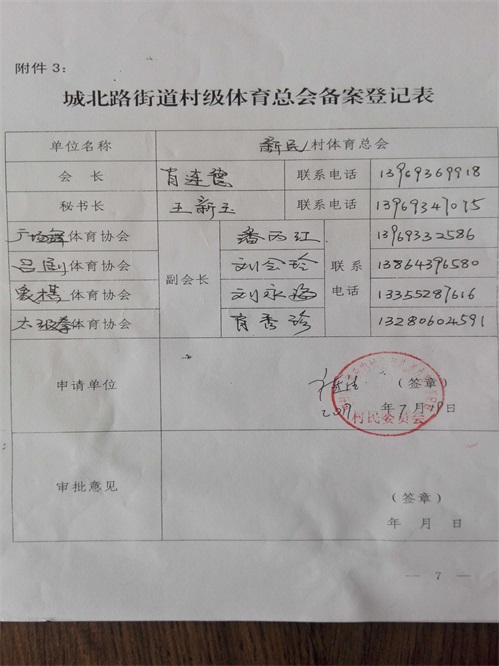 附件3：
城北路街道村级体育总会备案登记表
单位名称 新民村体育总会
会长 肖连德 联系电话 13969369918
秘书长 王新玉 联系电话 13969347075
广场舞体育协会 潘丙江 13969332586
吕剧体育协会 副会长 刘会玲 联系电话 13864396580
象棋体育协会 刘永 13355287616
太极拳体育协会 肖秀玲 13280604591
申请单位 （签章）
年7月19日
村民委员会
审批意见
（签章）
年 月 日
— 7 —